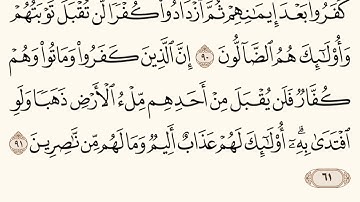 كَفَرُوا۟ بَعْدَ إِيمَٰنِهِمْ ثُمَّ ٱزْدَادُوا۟ كُفْرًا لَّن تُقْبَلَ تَوْبَتُهُمْ
وَأُو۟لَٰٓئِكَ هُمُ ٱلضَّآلُّونَ ٩٠ إِنَّ ٱلَّذِينَ كَفَرُوا۟ وَمَاتُوا۟ وَهُمْ
كُفَّارٌ فَلَن يُقْبَلَ مِنْ أَحَدِهِم مِّلْءُ ٱلْأَرْضِ ذَهَبًا وَلَوِ
ٱفْتَدَىٰ بِهِۦٓ ۗ أُو۟لَٰٓئِكَ لَهُمْ عَذَابٌ أَلِيمٌ وَمَا لَهُم مِّن نَّٰصِرِينَ ٩١
٦١